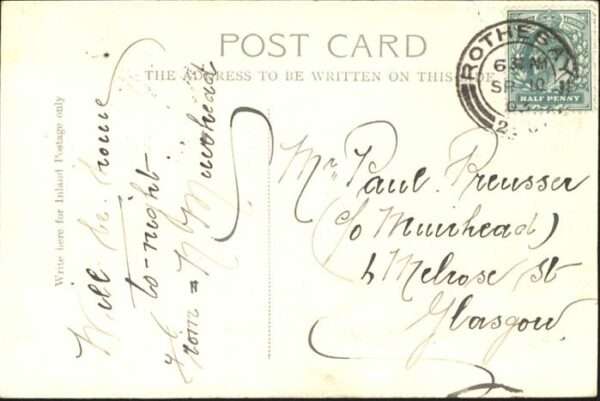 POST CARD
THE ADDRESS TO BE WRITTEN ON THIS SIDE
Write here for Inland Postage only
Will be home
to-night
From = N Muirhead
Mr Paul Preusser
C/o Muirhead)
4 Melrose St
Glasgow
ROTHESAY
6 30 AM
SP 10
HALF PENNY